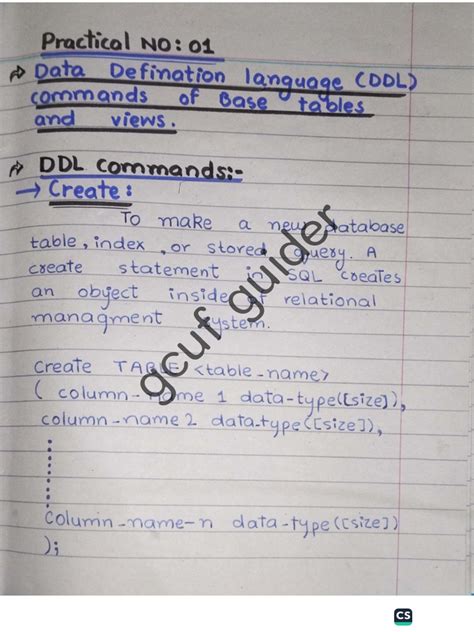 Practical NO: 01
Data Defination language (DDL)
commands of Base tables
and views.
DDL commands:-
→ Create:
To make a new database
table, index, or stored query. A
create statement in SQL creates
an object inside of relational
managment system.
Create TABLE <table_name>
( column_name 1 data-type([size]),
column_name 2 data-type([size]),
column_name-n data-type([size])
);
gcuf guider
CS